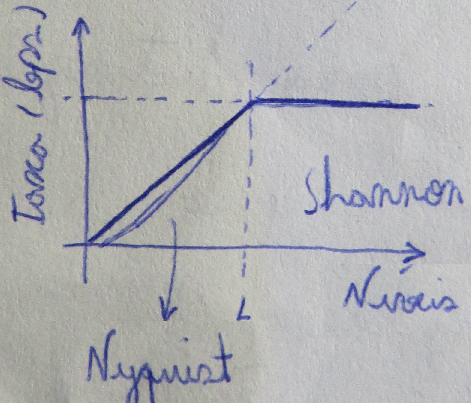 Taxa (bps)
Shannon
Níveis
L
Nyquist